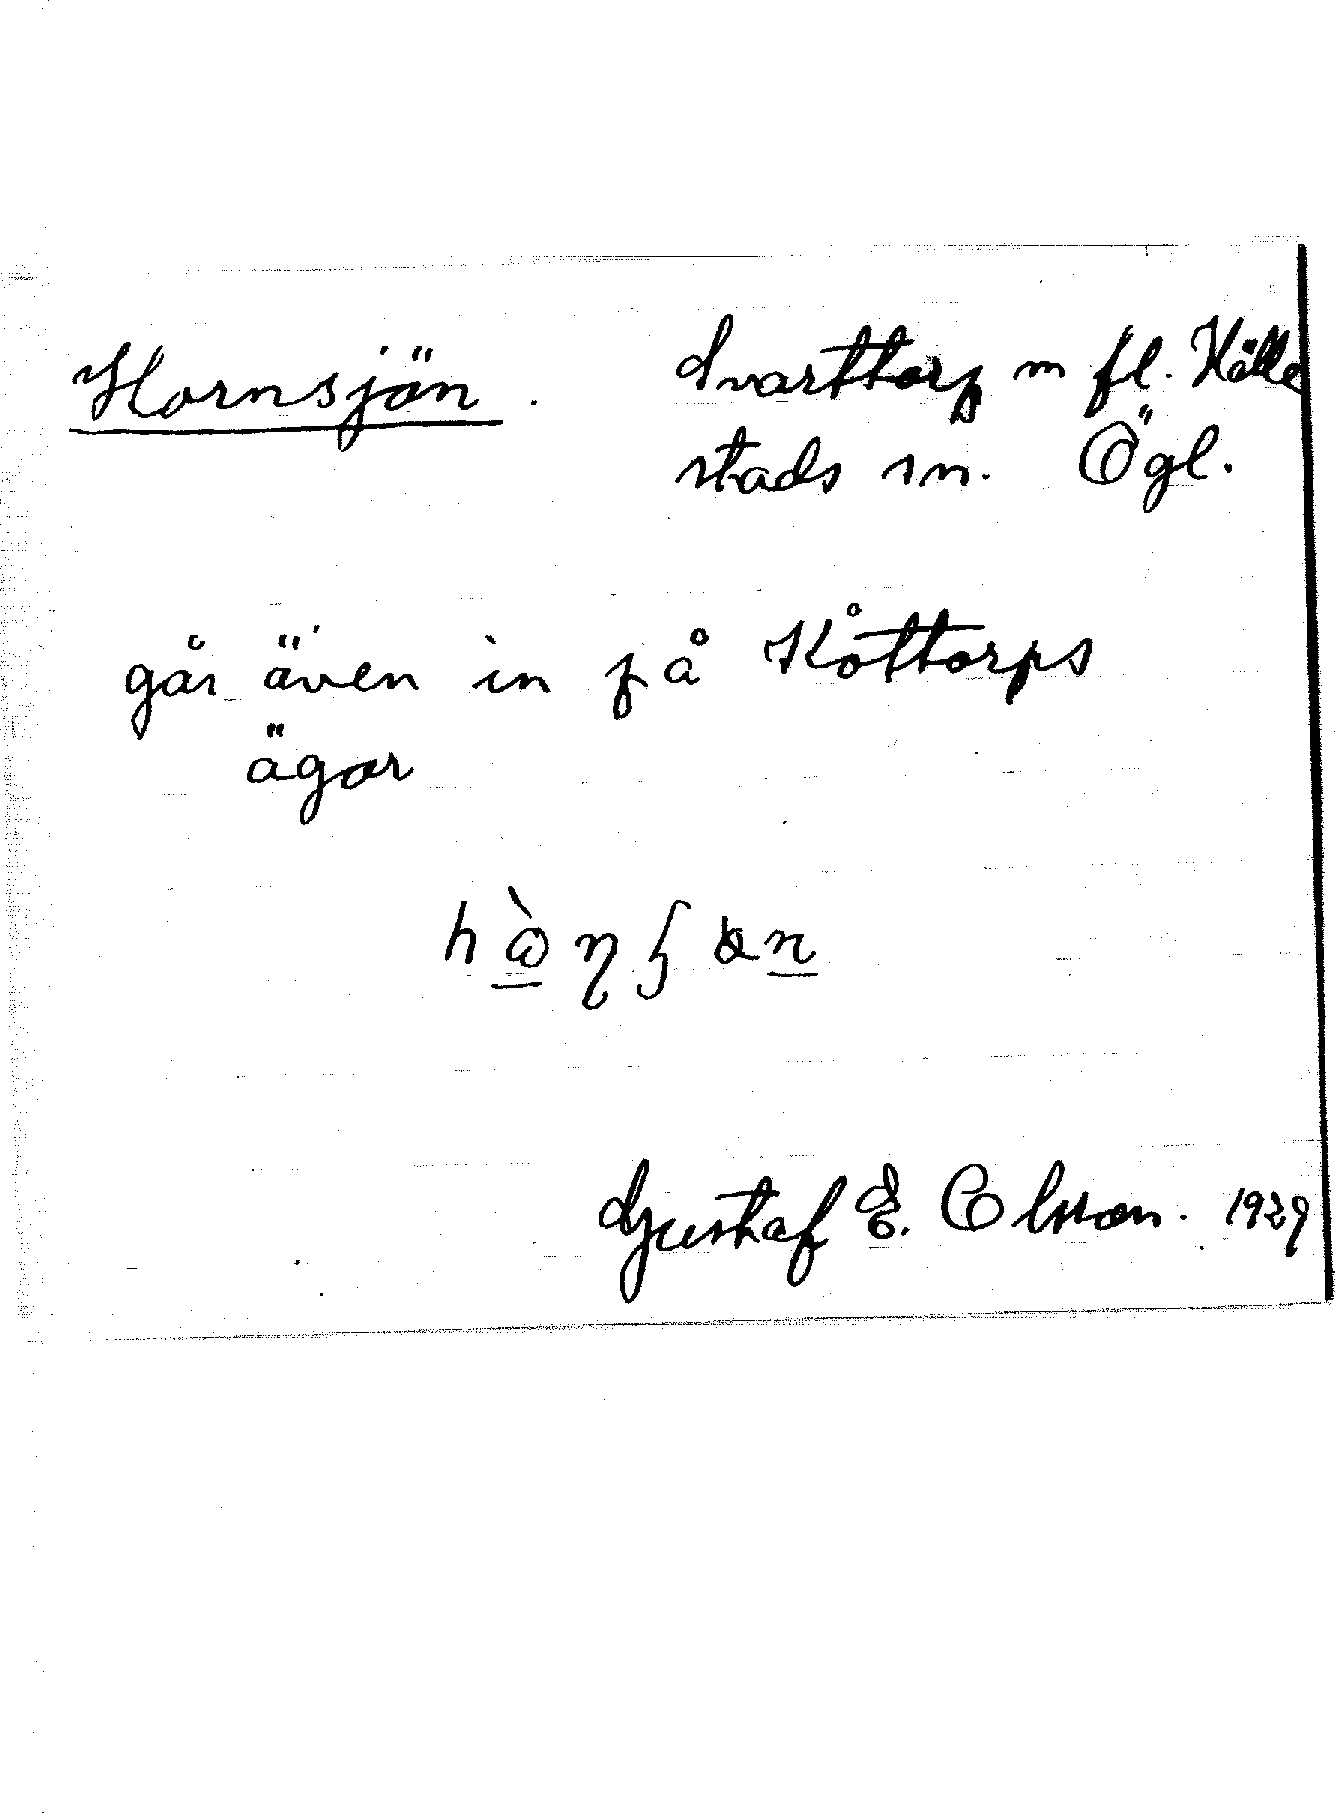 Hornsjön. Svarttorp m fl. Källe
stads sn. Ögl.
går även in på Kåttorps
ägor
Gustaf E. Olsson. 1929